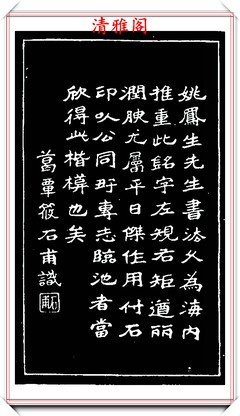 清雅阁
姚鳳生先生書法久為海内
推重此銘字左規右矩遒丽
潤腴尤屬平日傑作用付石
印以公同好專志臨池者當
欣得此楷模也矣
葛覃筱石甫識